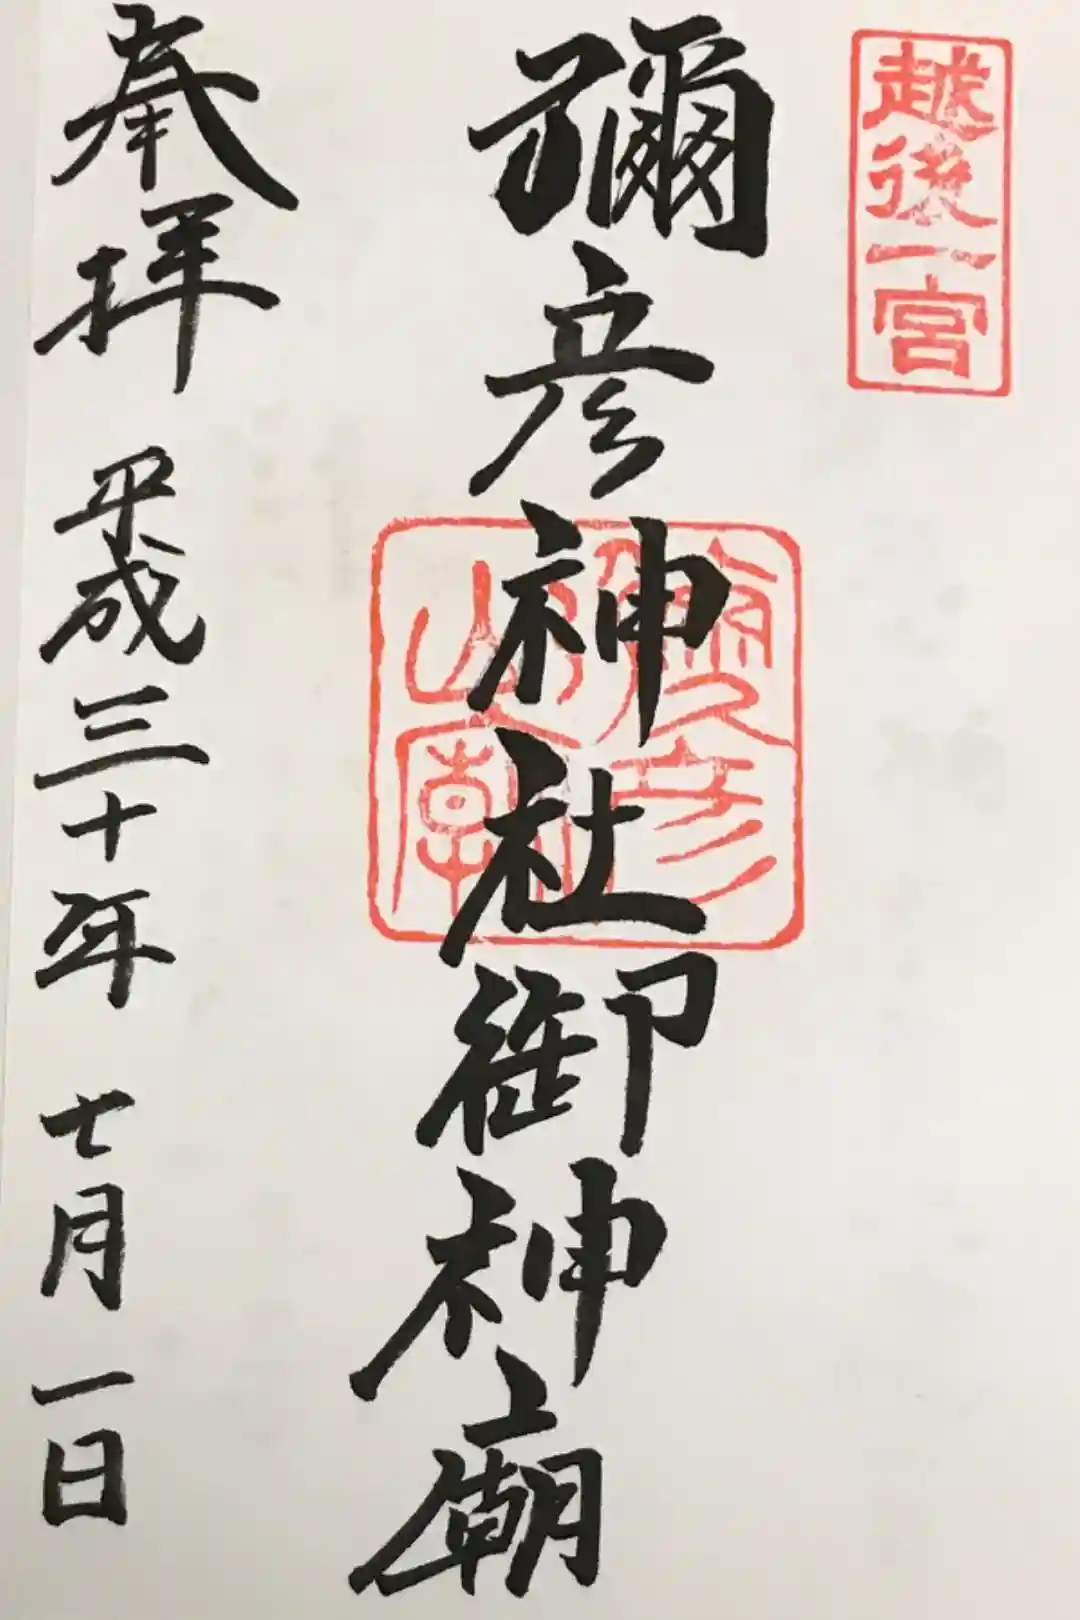 越後一宮
彌彦神社御神廟
彌彦山廟
奉拝 平成三十年 七月一日